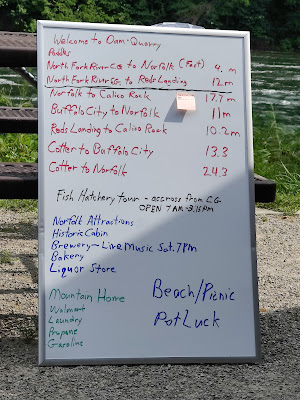 Welcome to Dam-Quarry
Paddles
North Fork River C.G to Norfolk (Fort) 4. m
North Fork River C.G. to Reds Landing 12 m
Norfolk to Calico Rock 17.7 m
Buffalo City to Norfolk 11 m
Reds Landing to Calico Rock 10.2 m
Cotter to Buffalo City 13.3
Cotter to Norfolk 24.3
Fish Hatchery tour - accross from C.G.
OPEN 7AM - 3:15PM
Norfolk Attractions
Historic Cabin
Brewery - Live Music Sat. 7PM
Bakery
Liquor Store
Mountain Home
Walmart
Laundry
Propane
Gasoline
Beach/Picnic
PotLuck